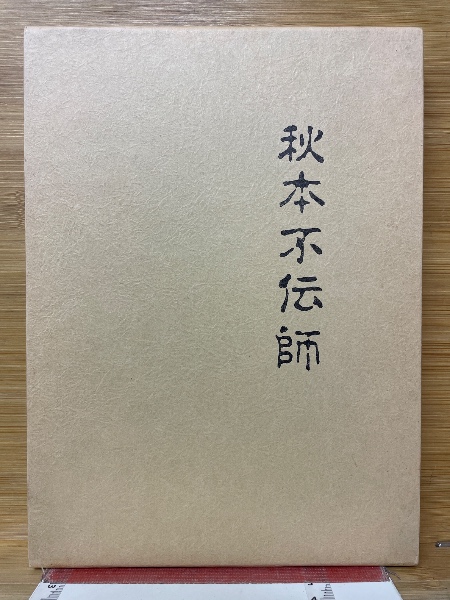 秋本不伝師